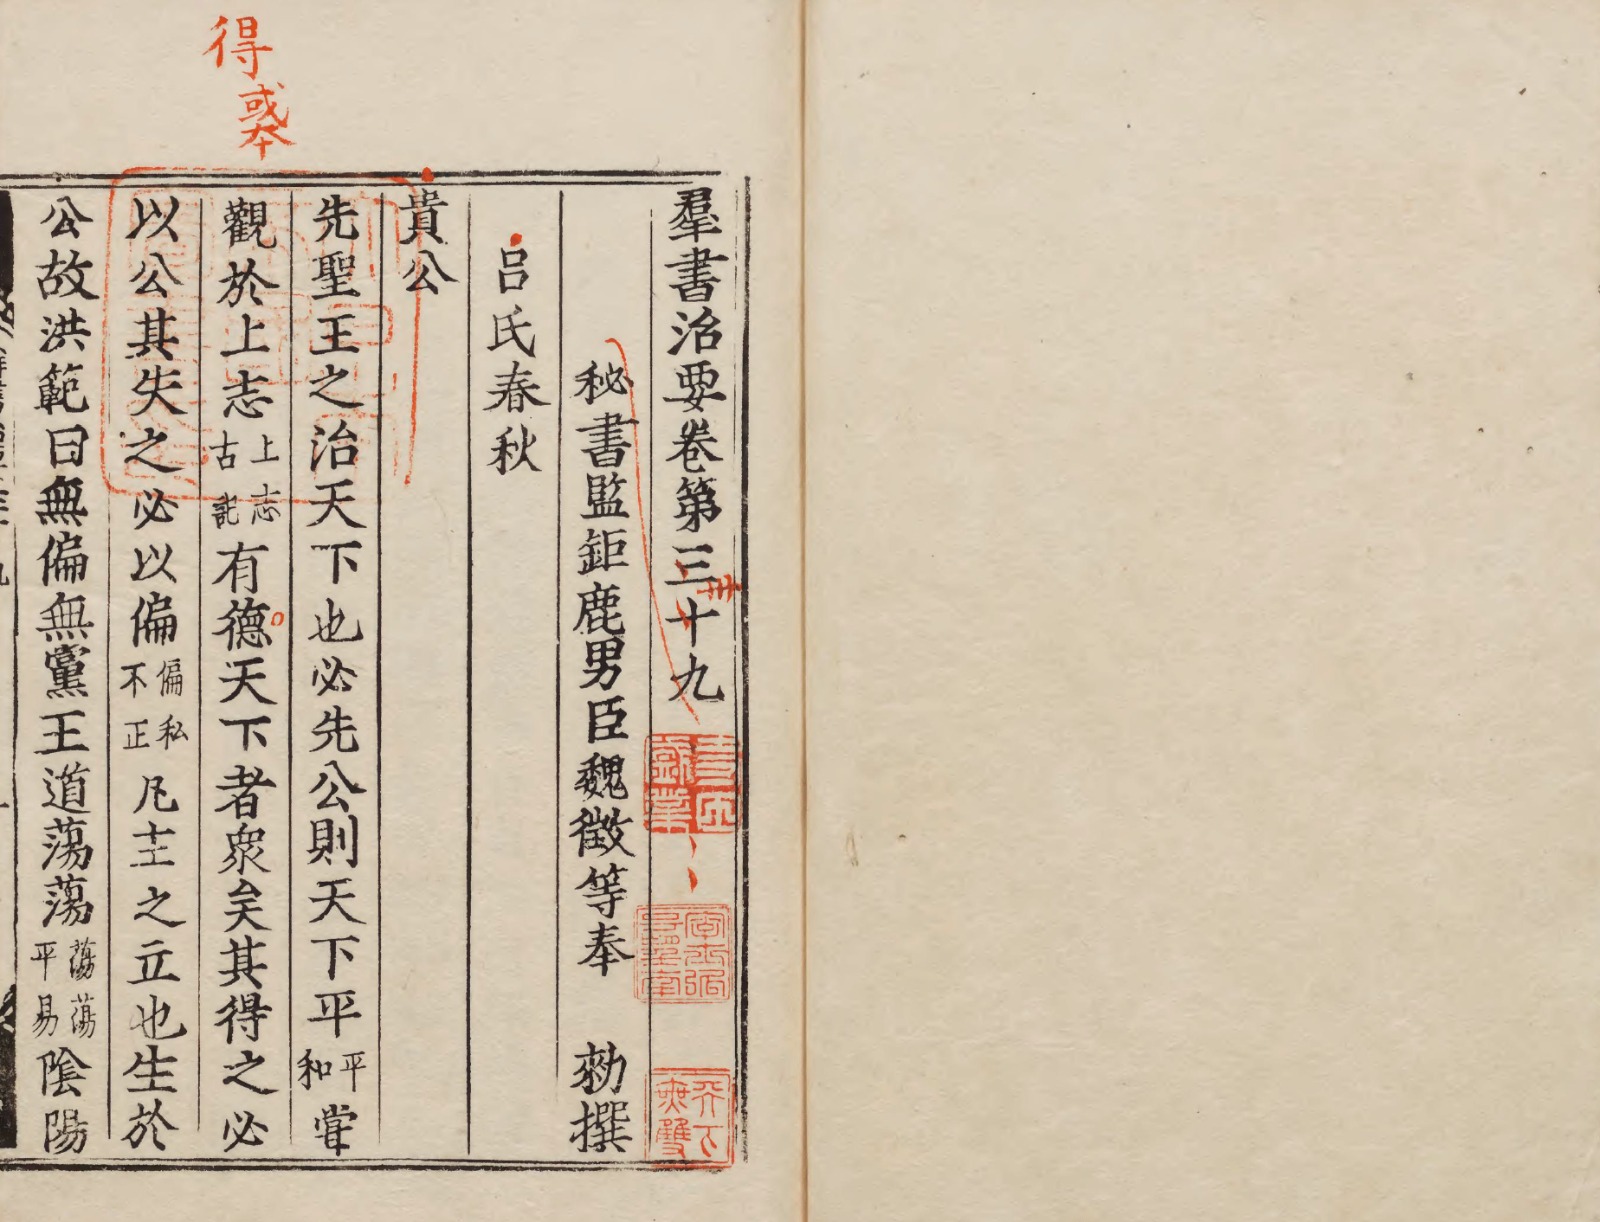 羣書治要卷第三十九
卅
秘書監鉅鹿男臣魏徵等奉　勑撰
呂氏春秋
貴公
先聖王之治天下也必先公則天下平平和嘗
觀於上志上志古記有德天下者衆矣其得之必
得
或本
以公其失之必以偏偏私不正凡主之立也生於
公故洪範曰無偏無黨王道蕩蕩蕩蕩平易陰陽
天下無雙